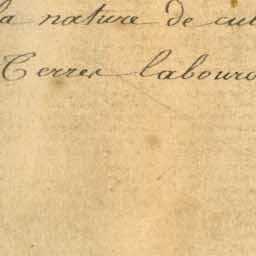 la nature de cul
Terres laboura